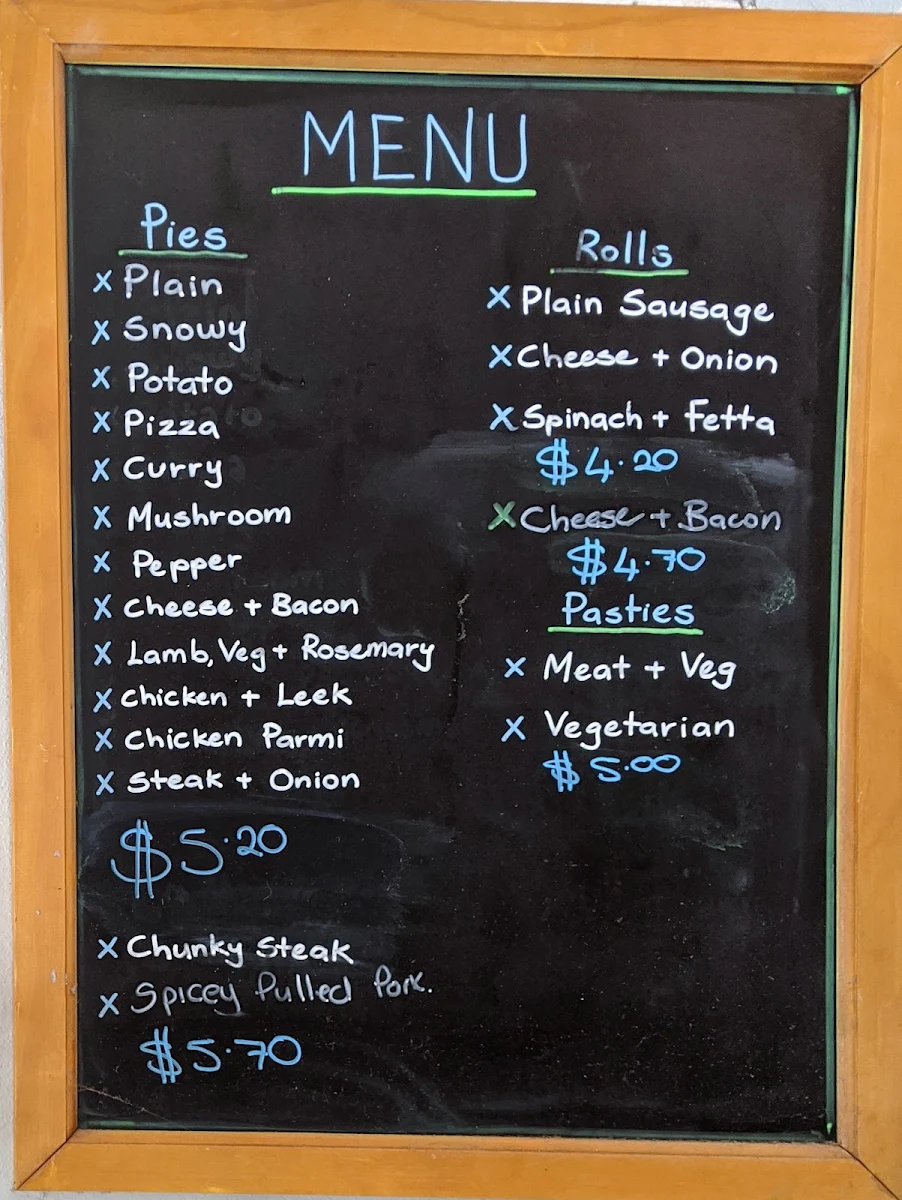 MENU
Pies
X Plain
X Snowy
X Potato
X Pizza
X Curry
X Mushroom
X Pepper
X Cheese + Bacon
X Lamb, Veg + Rosemary
X Chicken + Leek
X Chicken Parmi
X Steak + Onion
$5.20
X Chunky Steak
X Spicey Pulled Pork.
$5.70
Rolls
X Plain Sausage
X Cheese + Onion
X Spinach + Fetta
$4.20
X Cheese + Bacon
$4.70
Pasties
X Meat + Veg
X Vegetarian
$5.00